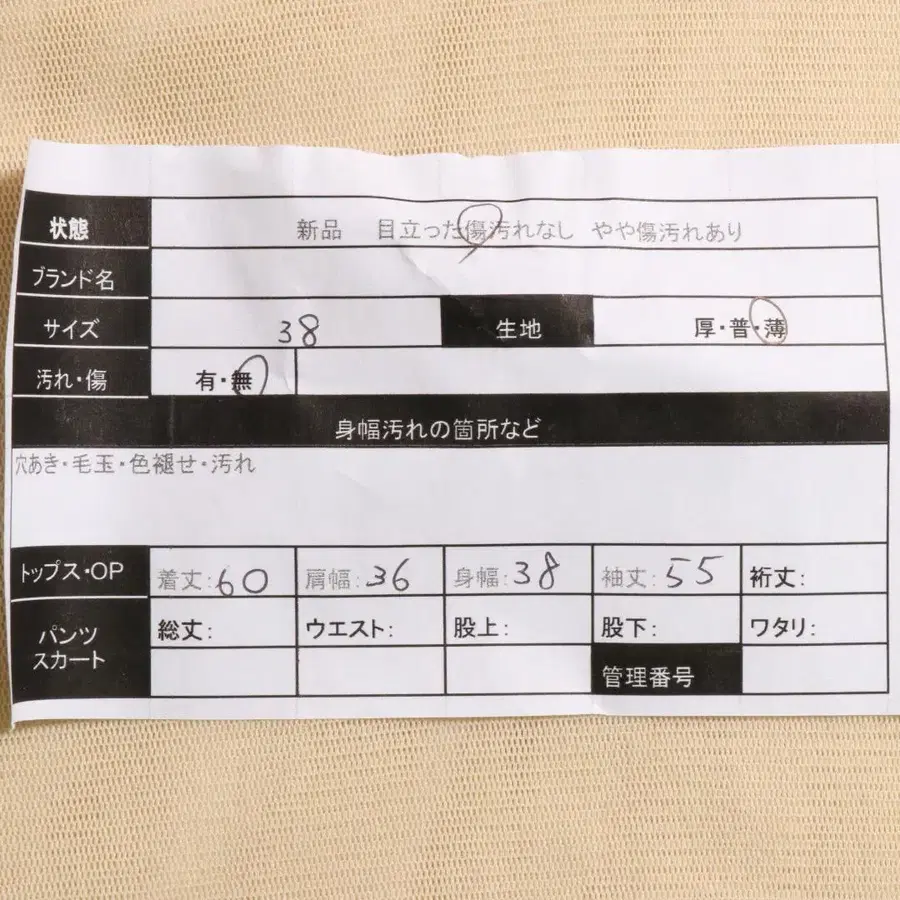 状態 新品 目立った傷汚れなし やや傷汚れあり
ブランド名
サイズ 38 生地 厚・普・薄
汚れ・傷 有・無
身幅汚れの箇所など
穴あき・毛玉・色褪せ・汚れ
トップス・OP 着丈:60 肩幅:36 身幅:38 袖丈:55 裄丈:
パンツ
スカート
総丈: ウエスト: 股上: 股下: ワタリ:
管理番号